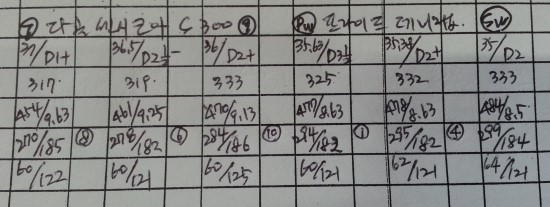 ⑦ 다음 C 300 ⑨ PW 프라이드 SW
37/D1+ 36.5/D2½- 36/D2+ 35.63/D3½ 35.38/D2+ 35/D2
317. 319. 333 325 332 333
454/9.63 461/9.25 470/9.13 477/8.63 478/8.63 484/8.5
270/185 ⑧ 278/182 ⑥ 284/186 ⑩ 294/182 ① 295/182 ④ 299/184
60/122 60/121 60/125 60/121 62/121 64/121